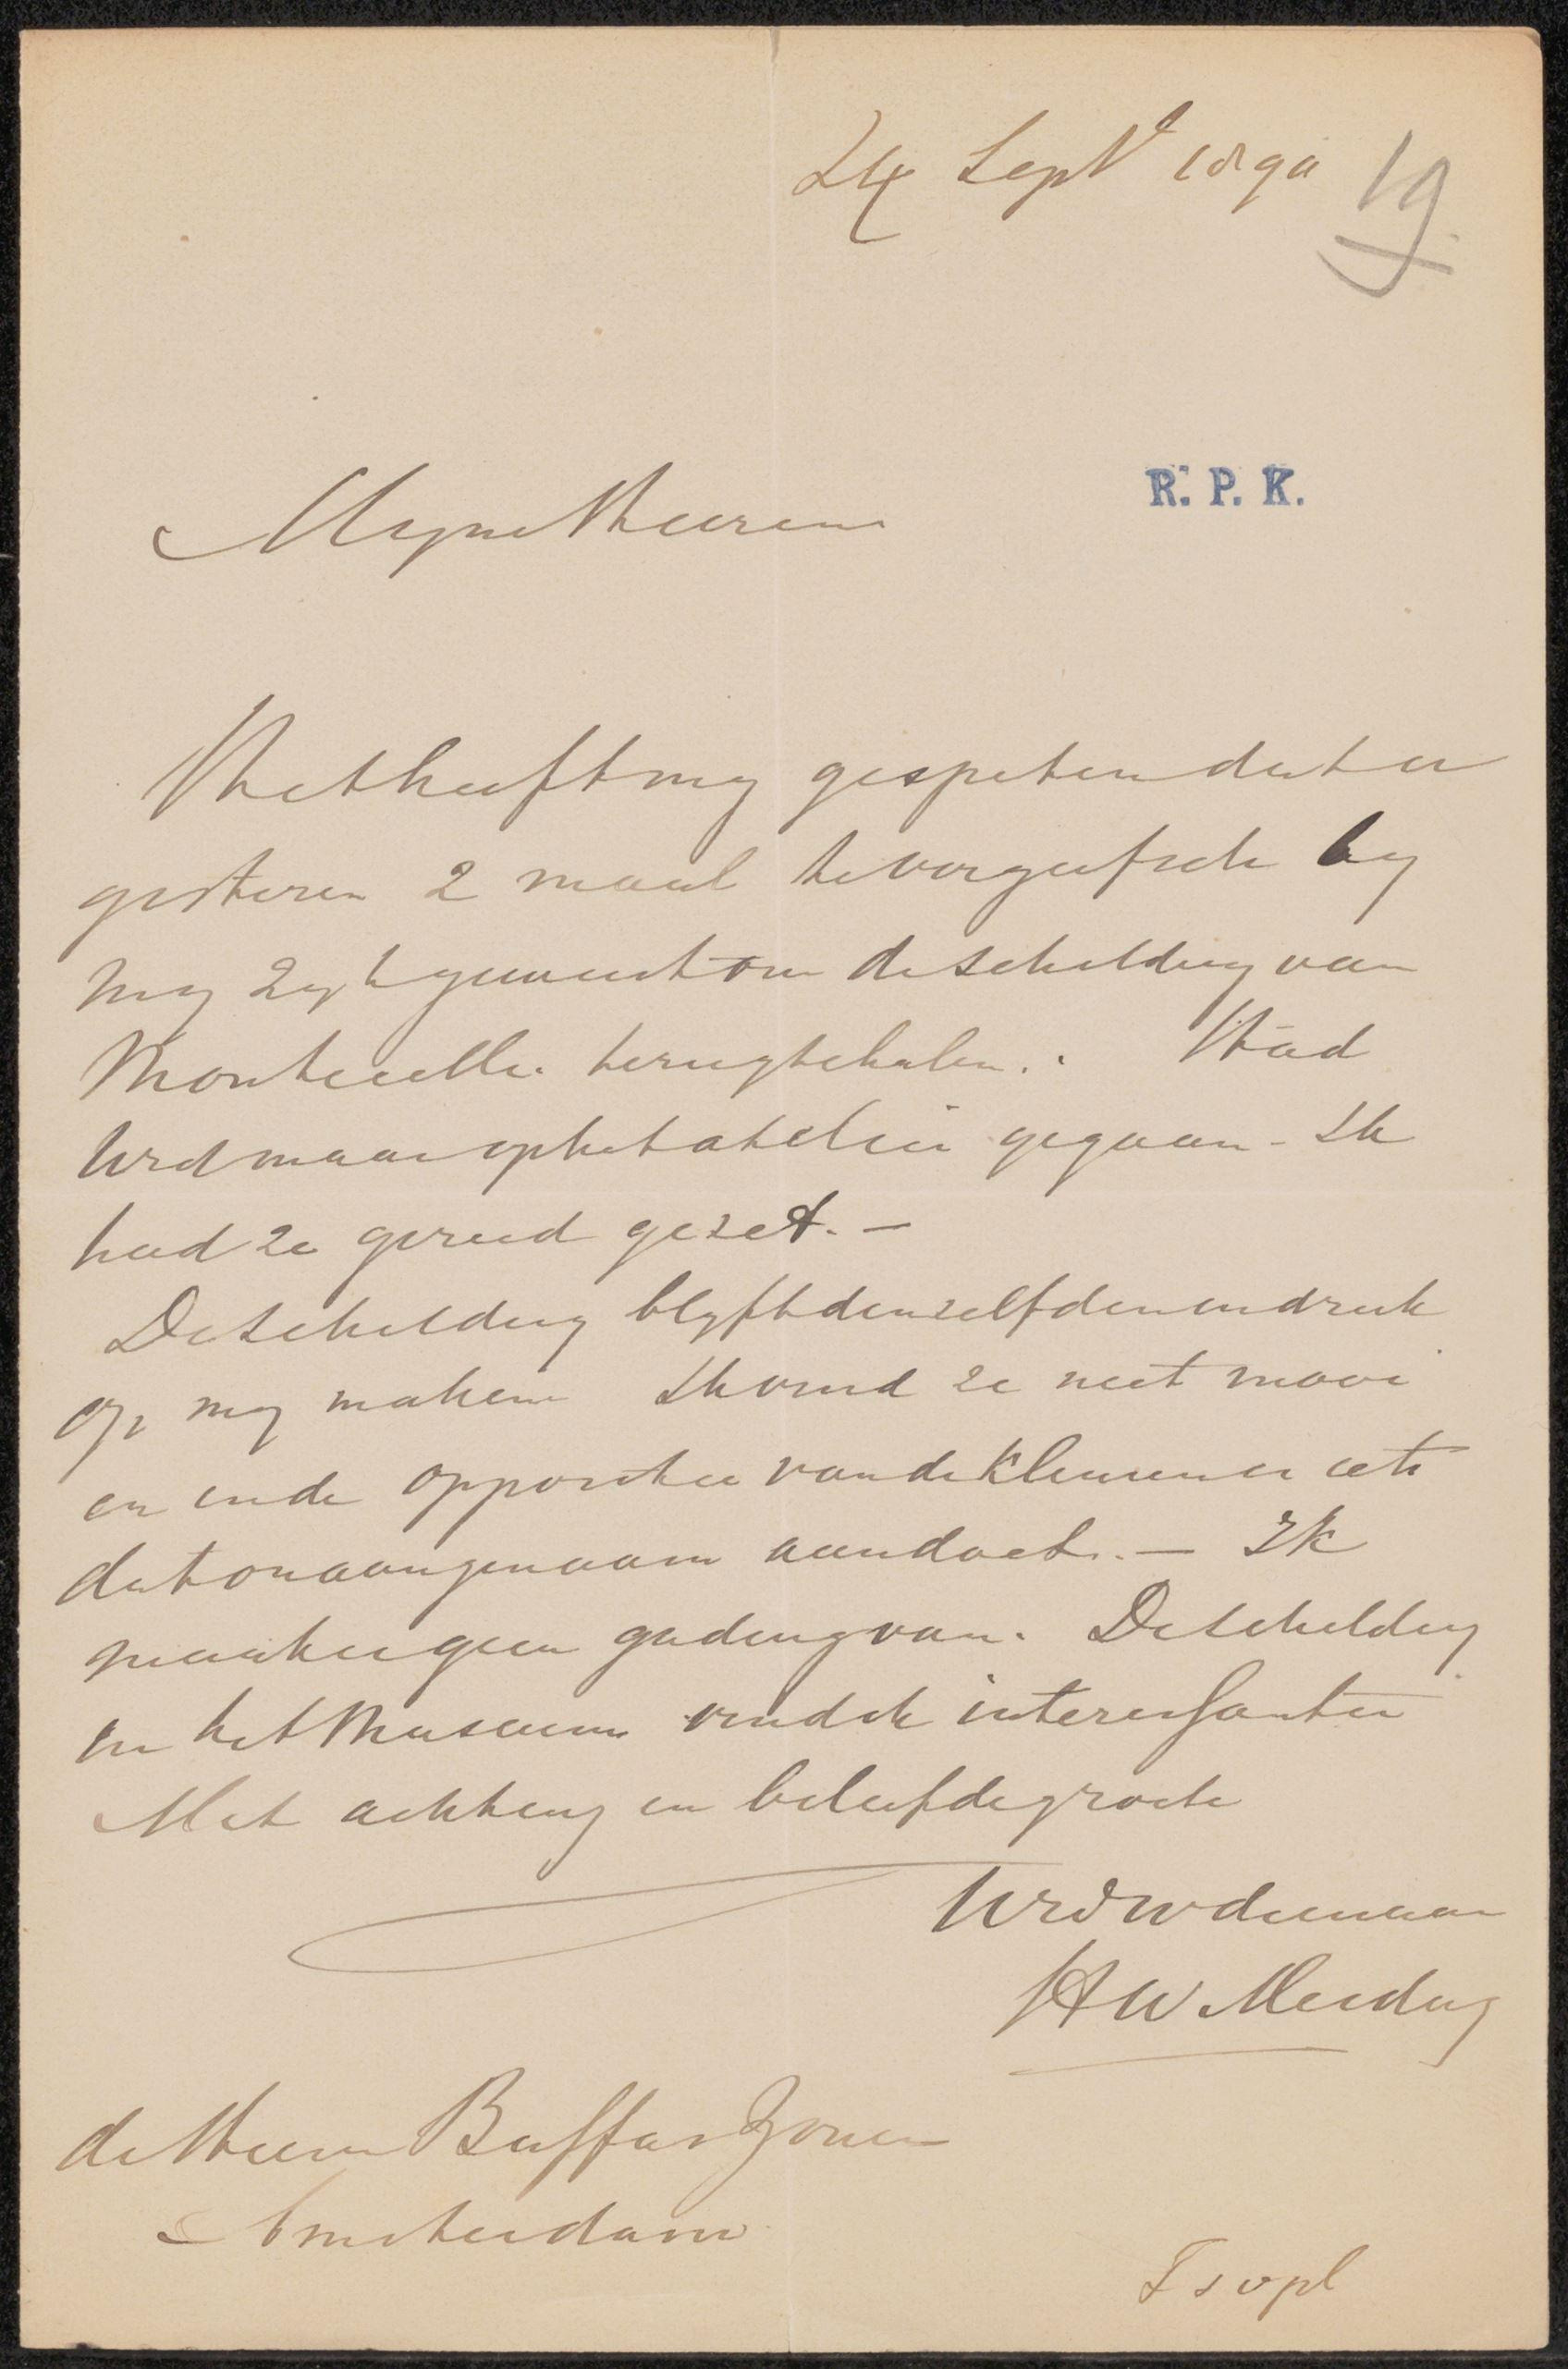 24 Sept 1890
19
R. P. K.
Mijne Heeren
Het heeft mij gespeten dat er
gisteren 2 maal te vergeefsch bij
mij zijt geweest om de schilderij van
Monticelli terug te halen. Had
Ued maar op het atelier gegaan - Ik
had ze gereed gezet. -
De schilderij blijft denzelfden indruk
op mij maken Ik vind ze niet mooi
en in de oppositie van de kleuren iets
dat onaangenaam aandoet. - Ik
maak er geen gading van. De schilderij
in het Museum vind ik interessanter
Met achting en beleefde groete
Uwdwdienaar
HW Mesdag
de Heeren Buffa & Zonen
Amsterdam
T s v p l